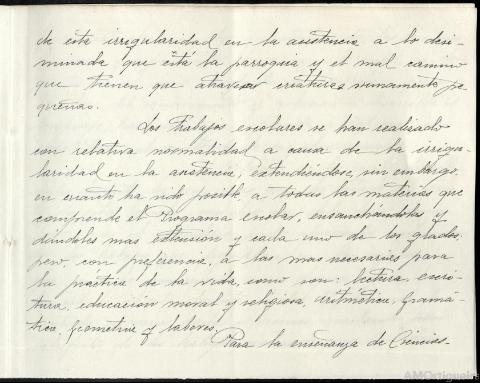 de esta irregularidad en la asistencia a lo dese-
minada que está la parroquia y el mal camino
que tienen que atravesar criaturas sumamente pe
queñas.
Los trabajos escolares se han realizado
con relativa normalidad a causa de la irregu-
laridad en la asistencia, extendiéndose, sin embargo,
en cuanto ha sido posible, a todas las materias que
comprende el Programa escolar, ensanchándolas y
dándoles mas extensión y cada uno de los grados;
pero, con preferencia, á las mas necesarias para
la práctica de la vida, como son: lectura, escri-
tura, educación moral y religiosa, aritmética, gramá-
tica, geometría y labores.
Para la enseñanza de Ciencias-
AMOrtigueira